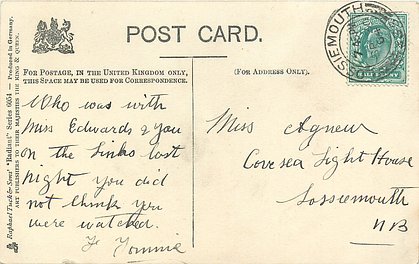 POST CARD.
FOR POSTAGE, IN THE UNITED KINGDOM ONLY,
THIS SPACE MAY BE USED FOR CORRESPONDENCE.
(FOR ADDRESS ONLY).
Who was with
Miss Edwards & you
on the Links last
night you did
not think you
were watched.
Tommie
Miss Agnew
Covesea Light House
Lossiemouth
NB
Raphael Tuck & Sons' "Radiant" Series 6654 — Produced in Germany.
ART PUBLISHERS TO THEIR MAJESTIES THE KING & QUEEN.
SSIEMOUTH
HALF PENNY